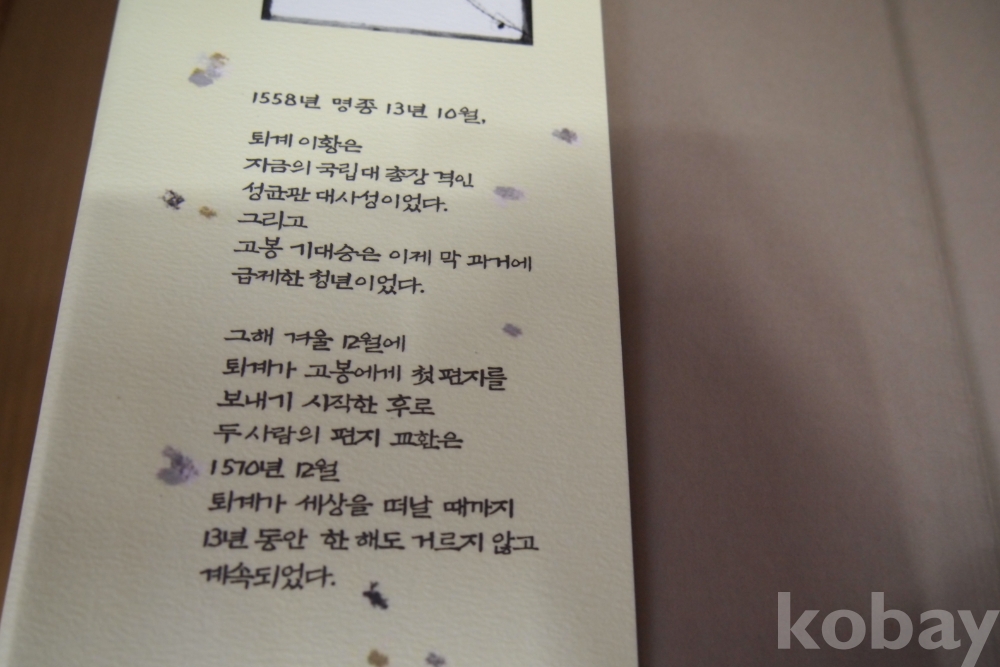 1558년 명종 13년 10월,
퇴계 이황은
지금의 국립대 총장 격인
성균관 대사성이었다.
그리고
고봉 기대승은 이제 막 과거에
급제한 청년이었다.
그해 겨울 12월에
퇴계가 고봉에게 첫 편지를
보내기 시작한 후로
두 사람의 편지 교환은
1570년 12월
퇴계가 세상을 떠날 때까지
13년 동안 한 해도 거르지 않고
계속되었다.
kobay